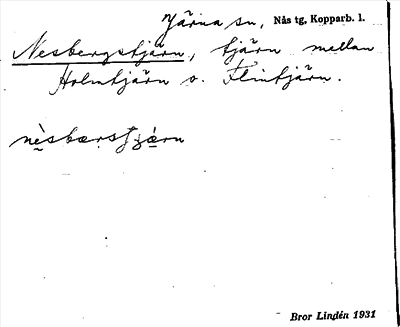 Järna sn, Nås tg, Kopparb. l.
Nesbergstjärn, tjärn mellan
Holmtjärn o. Flintjärn.
Bror Lindén 1931